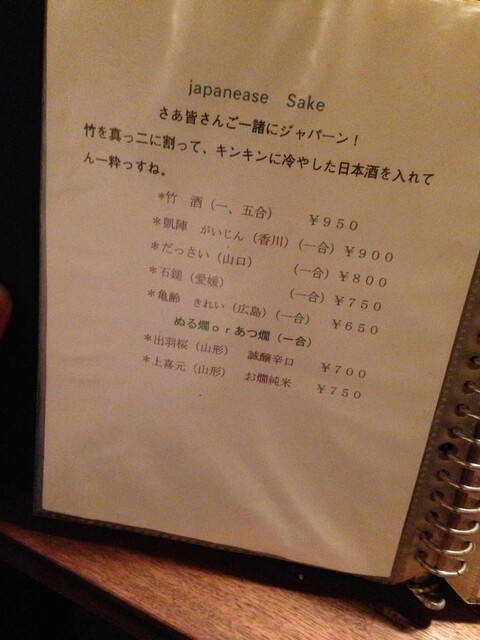 japanease Sake
さあ皆さんご一諸にジャパーン！
竹を真っ二に割って、キンキンに冷やした日本酒を入れて
ん一粋っすね。
＊竹 酒（一、五合） ￥９５０
＊凱陣 がいじん（香川）（一合）￥９００
＊だっさい（山口） （一合）￥８００
＊石鎚（愛媛） （一合）￥７５０
＊亀齢 きれい（広島）（一合） ￥６５０
ぬる燗ｏｒあつ燗（一合）
＊出羽桜（山形） 誠醸辛口 ￥７００
＊上喜元（山形） お燗純米 ￥７５０